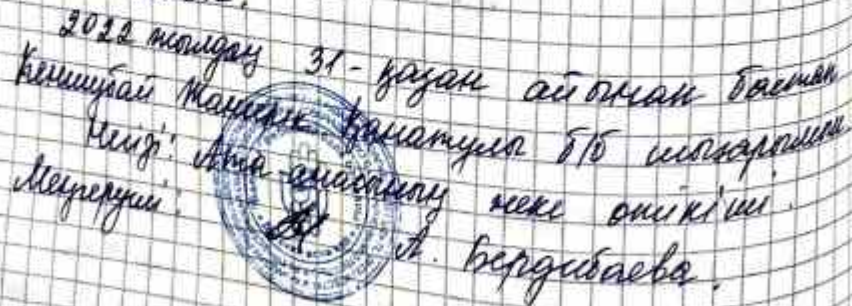 2022 жылдың 31-қазан айынан бастап
Қанатұлы б/б шығарылсын
Негізі: Ата-анасының жеке өтініші.
Меңгеруші:
А. Бердибаева.